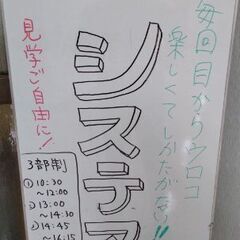 毎回目からウロコ
楽しくてしかたがない!!
システマ
見学ご自由に!
3部制
①10:30
～12:00
②13:00
～14:30
③14:45
～16:15